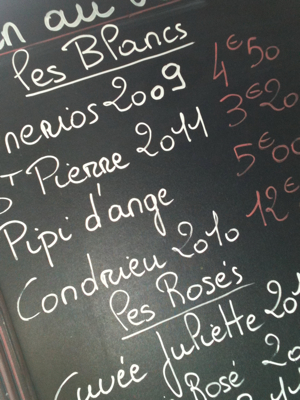 au
Les Blancs
nerios 2009 4€50
Pierre 2011 3€20
Pipi d'ange 5€00
Condrieu 2010 12€
Les Rosés
Cuvée Juliette 20
Rosé 20